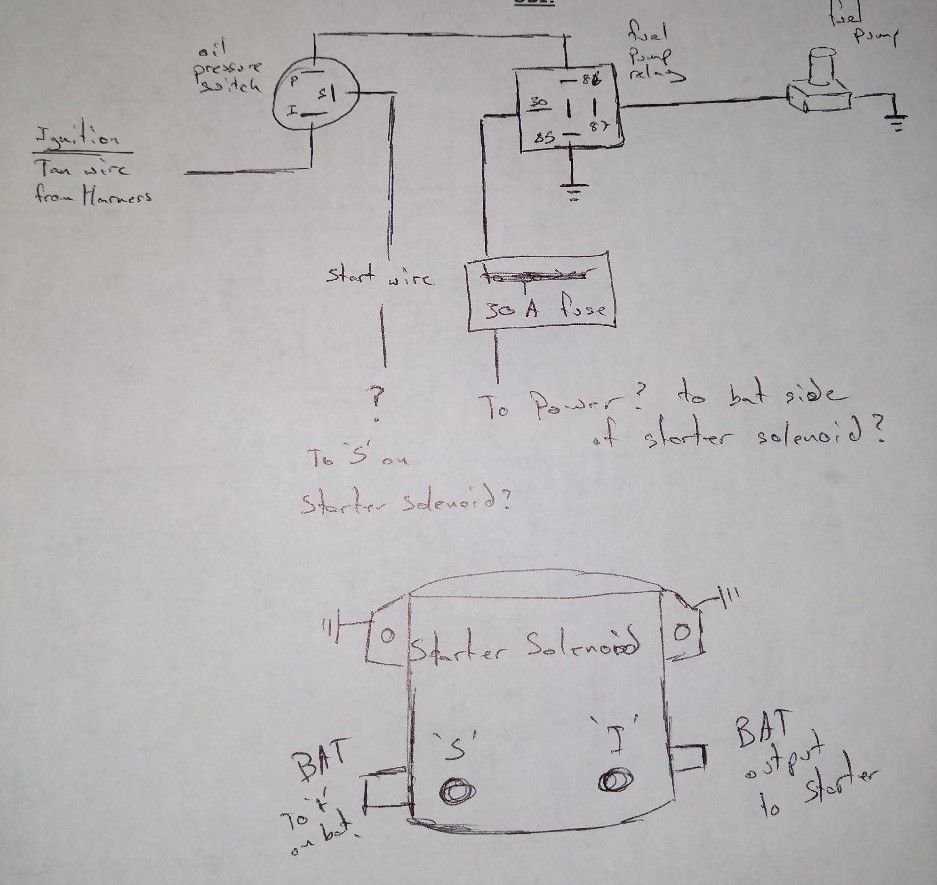 oil
pressure
switch
P
S
I
Ignition
Tan wire
from Harness
fuel
pump
relay
86
30
87
85
fuel
pump
start wire
?
To 'S' on
starter solenoid?
30 A fuse
To Power? to bat side
of starter solenoid?
Starter Solenoid
'S'
'I'
BAT
To '+'
on bat.
BAT
output
to starter